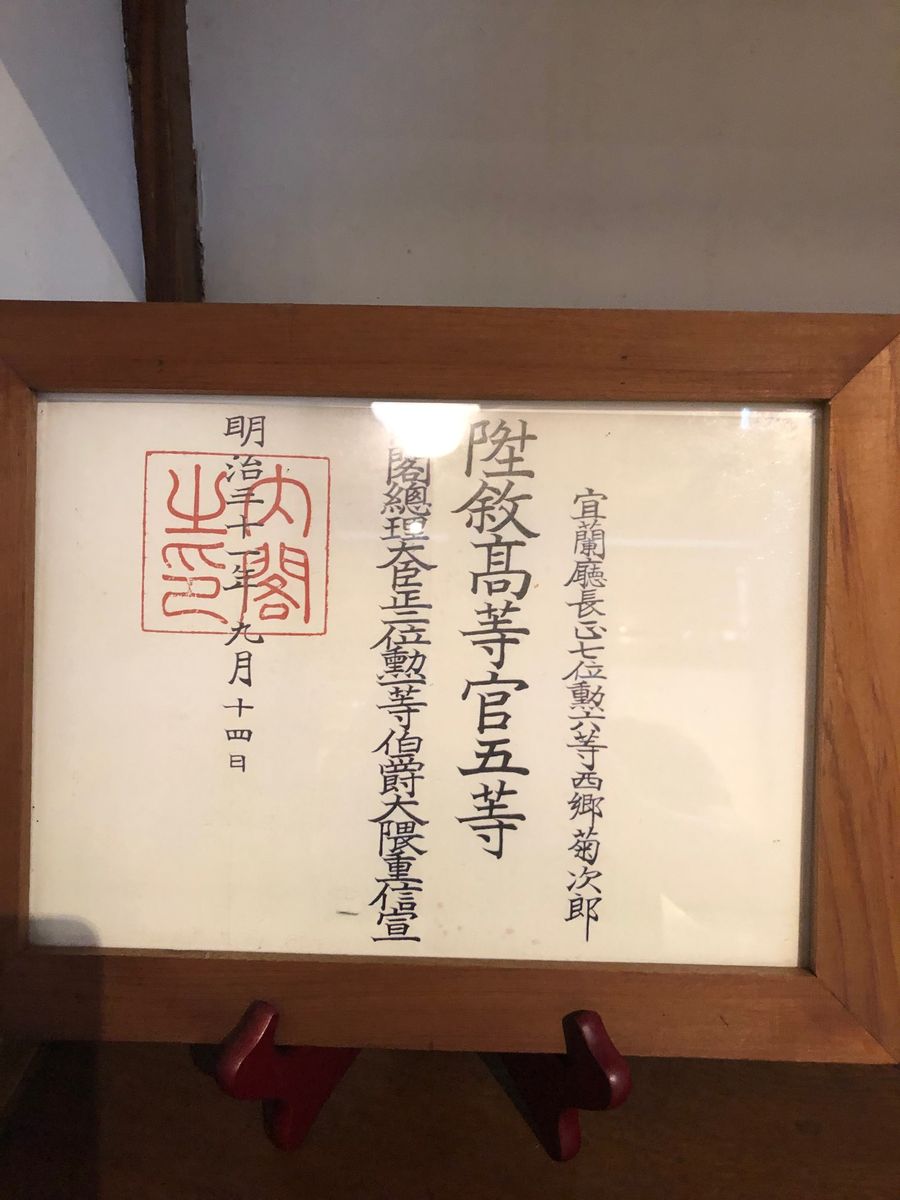 宜蘭廳長正七位勲六等西郷菊次郎
陞敘高等官五等
閣總理大臣正二位勲一等伯爵大隈重信宣
明治三十一年九月十四日
内閣之印